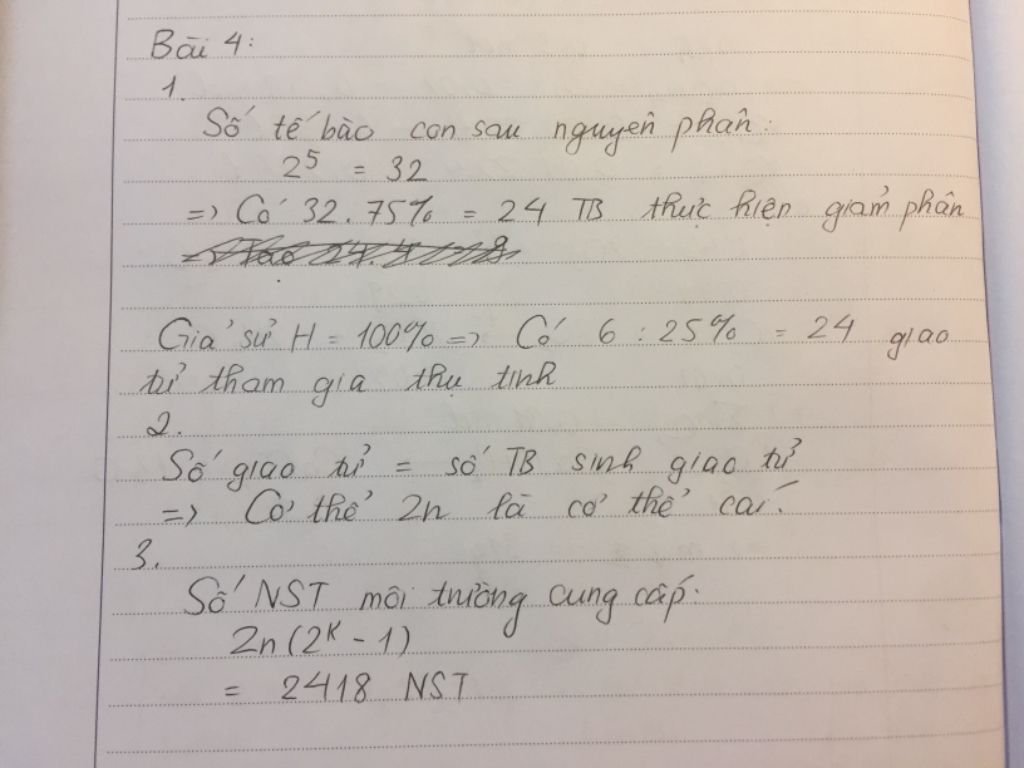 Bài 4:
1.
Số tế bào con sau nguyên phân:
2⁵ = 32
=> Có 32.75% = 24 TB thực hiện giảm phân
Giả sử H = 100% => Có 6 : 25% = 24 giao
tử tham gia thụ tinh
2.
Số giao tử = số TB sinh giao tử
=> Cơ thể 2n là cơ thể cái.
3.
Số NST môi trường cung cấp:
2n(2ᴷ - 1)
= 2418 NST